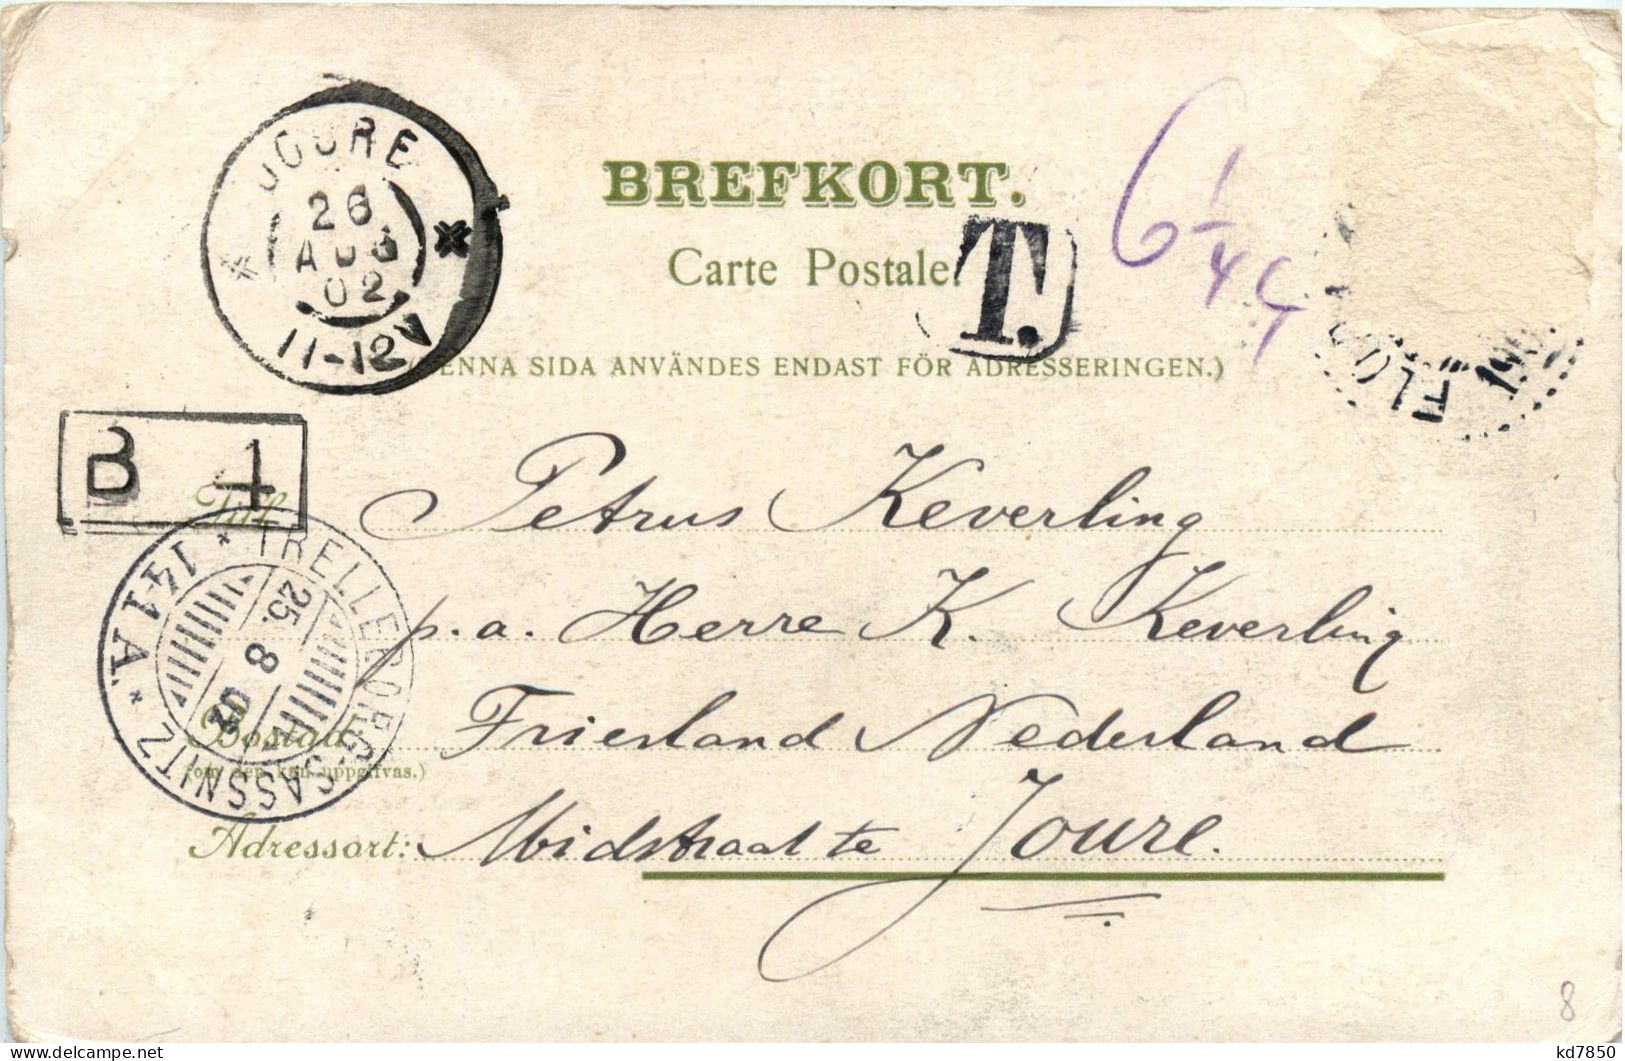 JOURE
26
AUG
02
11-12V
BREFKORT.
Carte Postale.
T.
6 1/4 c
(DENNA SIDA ANVÄNDES ENDAST FÖR ADRESSERINGEN.)
B 1
Till Petrus Keverling
p.a. Herre K. Keverling
TRELLEBORG-SASSNITZ * 141 A *
25. 8 02
Friesland Nederland
Bostad
(om den kan uppgifvas.)
Adressort: Midstraat te Joure.
8
kd7850